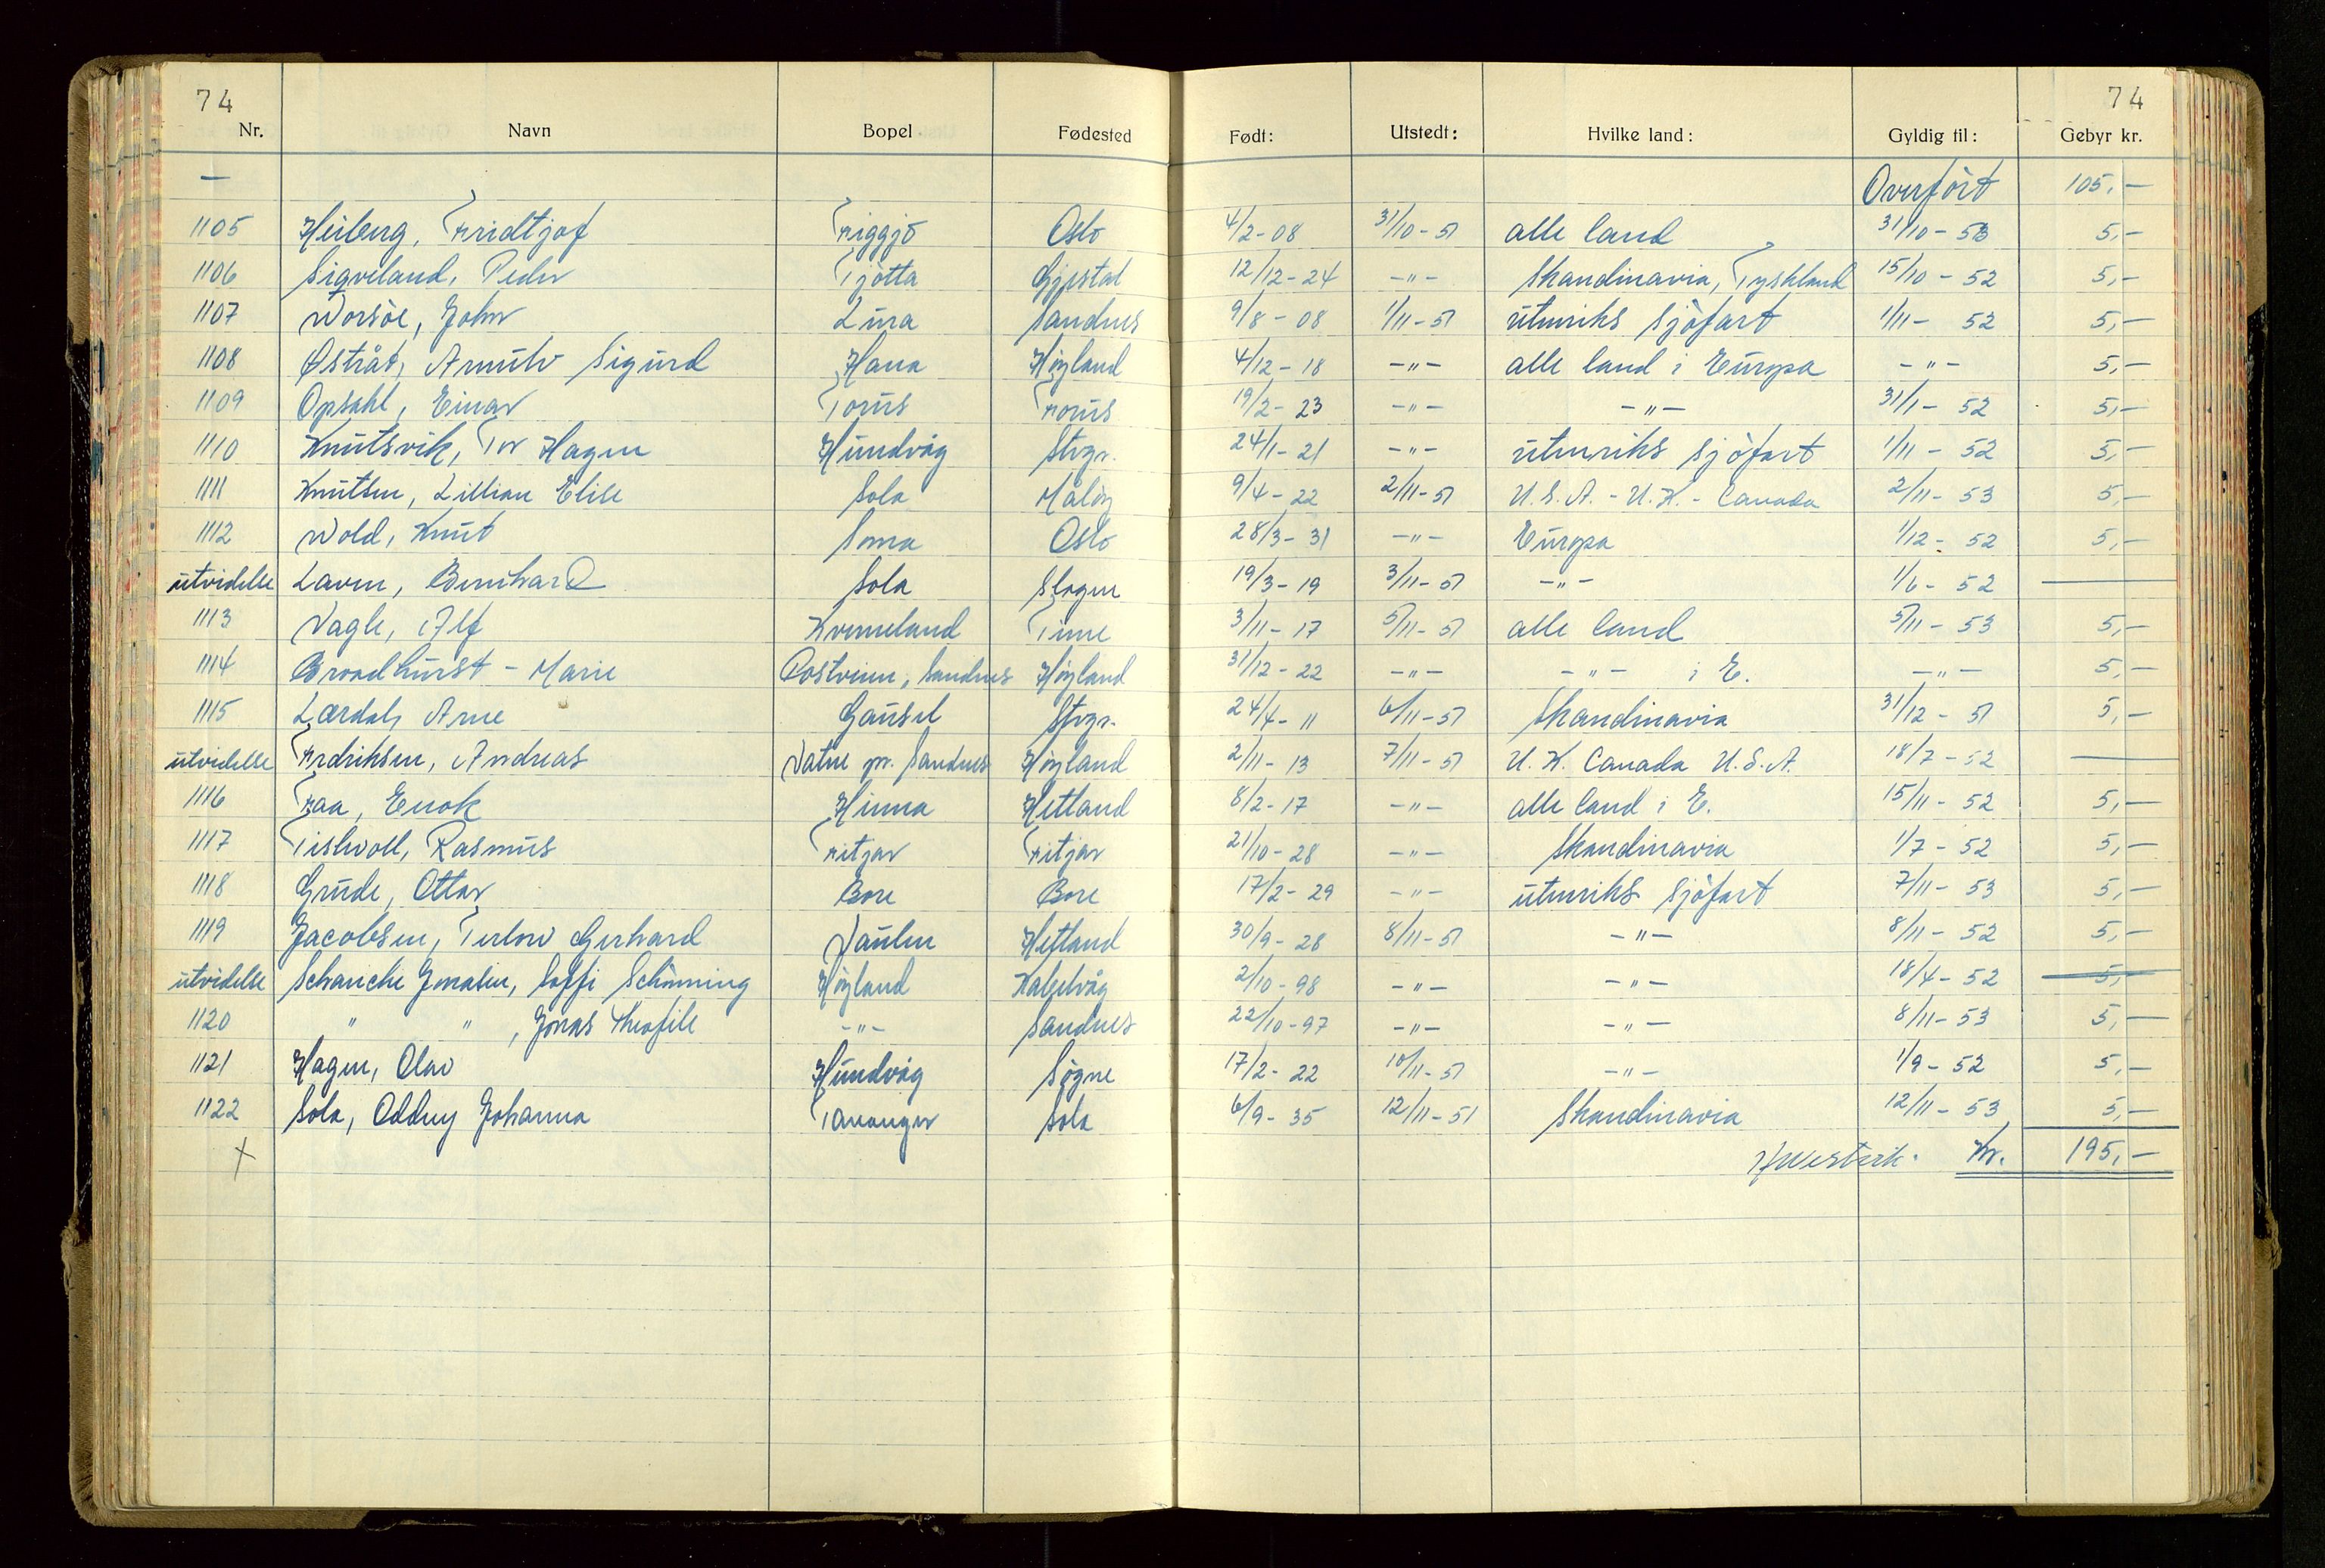 74 74
Nr. Navn Bopel Fødested Født: Utstedt: Hvilke land: Gyldig til: Gebyr kr.
— Overført 105,-
1105 Heiberg, Fridtjof Figgjo Oslo 4/2-08 31/10-51 alle land 31/10-53 5,-
1106 Sigveland, Peder Tjøtta Gjestal 12/12-24 -"- Skandinavia, Tyskland 15/10-52 5,-
1107 Worsøe, John Lura Sandnes 9/8-08 1/11-51 utenriks sjøfart 1/11-52 5,-
1108 Østråt, Arnulv Sigurd Hana Høyland 4/12-18 -"- alle land i Europa -"- 5,-
1109 Opsahl, Einar Forus Forus 19/2-23 -"- -"- 31/1-52 5,-
1110 Knutsvik, Tor Hagen Hundvåg Stvgr. 24/1-21 -"- utenriks sjøfart 1/11-52 5,-
1111 Knutsen, Lillian Elise Sola Måløy 9/4-22 2/11-51 U.S.A. - U.K. - Canada 2/11-53 5,-
1112 Wold, Knut Soma Oslo 28/3-31 -"- Europa 1/12-52 5,-
utvidelse Laven, Bernhard Sola Slagen 19/3-19 3/11-51 -"- 1/6-52 —
1113 Vagle, Alf Kverneland Time 3/11-17 5/11-51 alle land 5/11-53 5,-
1114 Broadhurst - Marie Postveien, Sandnes Høyland 31/12-22 -"- -"- i E. -"- 5,-
1115 Lærdal, Arne Gausel Stvgr. 24/4-11 6/11-51 Skandinavia 31/12-51 5,-
utvidelse Fredriksen, Andreas Vatne pr. Sandnes Høyland 2/11-13 7/11-51 U.K. Canada U.S.A. 18/7-52 —
1116 Faa, Enok Hinna Hetland 8/2-17 -"- alle land i E. 15/11-52 5,-
1117 Tislevoll, Rasmus Fitjar Fitjar 21/10-28 -"- Skandinavia 1/7-52 5,-
1118 Grude, Ottar Bore Bore 17/2-29 -"- utenriks sjøfart 7/11-53 5,-
1119 Jacobsen, Terlow Gerhard Vaulen Hetland 30/9-28 8/11-51 -"- 8/11-52 5,-
utvidelse Schanche Jonasen, Soffi Schønning Høyland Kabelvåg 2/10-98 -"- -"- 18/4-52 5,-
1120 " " , Jonas Theofile -"- Sandnes 22/10-97 -"- -"- 8/11-53 5,-
1121 Hagen, Olav Hundvåg Søgne 17/2-22 10/11-51 -"- 1/9-52 5,-
1122 Sola, Oddny Johanna Tananger Sola 6/9-35 12/11-51 Skandinavia 12/11-53 5,-
x Kr. 195,-